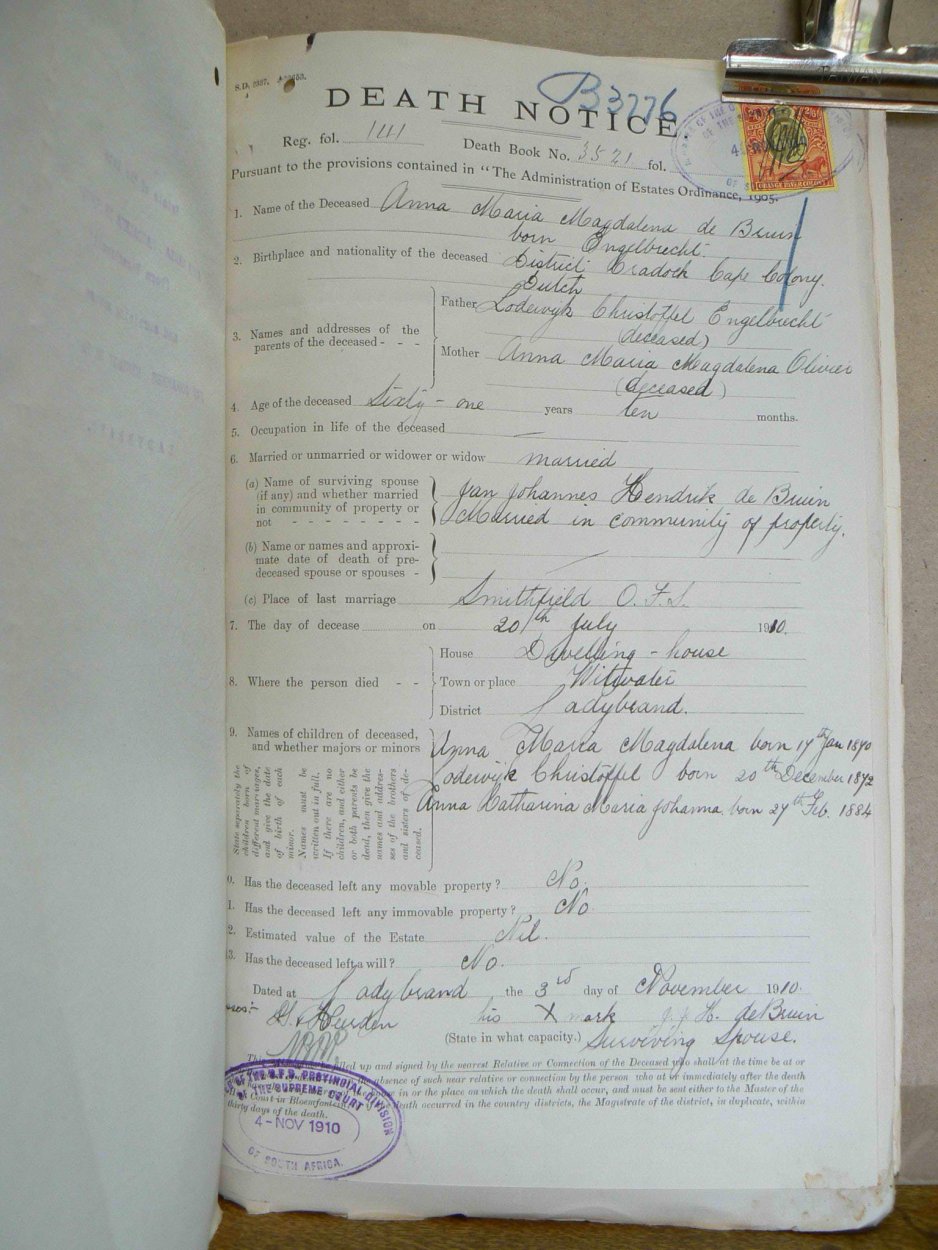 TAIWAN
S.D. 2337.
B3776
DEATH NOTICE
Reg. fol. 141 Death Book No. 3521 fol.
Pursuant to the provisions contained in "The Administration of Estates Ordinance, 1905.
ORANGE RIVER COLONY
1. Name of the Deceased Anna Maria Magdalena de Bruin
born Engelbrecht.
2. Birthplace and nationality of the deceased District Cradock Cape Colony.
Dutch
3. Names and addresses of the parents of the deceased - - -
Father Lodewijk Christoffel Engelbrecht
(deceased)
Mother Anna Maria Magdalena Olivier
(deceased)
4. Age of the deceased Sixty - one years ten months.
5. Occupation in life of the deceased —
6. Married or unmarried or widower or widow married
(a) Name of surviving spouse
(if any) and whether married
in community of property or
not - - - - - - - -
Jan Johannes Hendrik de Bruin
Married in community of property.
(b) Name or names and approxi-
mate date of death of pre-
deceased spouse or spouses -
(c) Place of last marriage Smithfield O.F.S.
7. The day of decease on 20th July 1910.
8. Where the person died - -
House Dwelling - house
Town or place Witwater
District Ladybrand.
9. Names of children of deceased,
and whether majors or minors
State separately the
children born of
different marriages,
and give the date
of birth of each
minor.
Names must be
written out in full.
If there are no
children, and either
or both parents be
dead, then give the
names and addres-
ses of the brothers
and sisters of de-
ceased.
Anna Maria Magdalena born 14th Jan 1870
Lodewijk Christoffel born 20th December 1872
Anna Catharina Maria Johanna born 27th Feb. 1884
0. Has the deceased left any movable property? No.
1. Has the deceased left any immovable property? No
2. Estimated value of the Estate Nil.
13. Has the deceased left a will? No.
Dated at Ladybrand the 3rd day of November 1910.
his X mark J. J. H. de Bruin
(State in what capacity.) Surviving Spouse.
This be filled up and signed by the nearest Relative or Connection of the Deceased who shall at the time be at or
absence of such near relative or connection by the person who at or immediately after the death
in or the place on which the death shall occur, and must be sent either to the Master of the
Court in Bloemfontein death occurred in the country districts, the Magistrate of the district, in duplicate, within
thirty days of the death.
OF THE O.F.S. PROVINCIAL DIVISION
OF THE SUPREME COURT
4 - NOV 1910
OF SOUTH AFRICA.